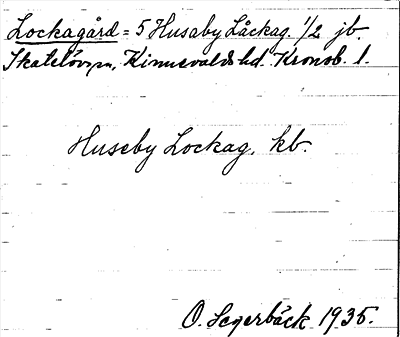 Lockagård = 5 Husaby Låckag. 1/2 jb.
Skatelövs sn, Kinnevalds hd. Kronob. l.
Huseby Lockag. kb.
O. Segerbäck 1935.